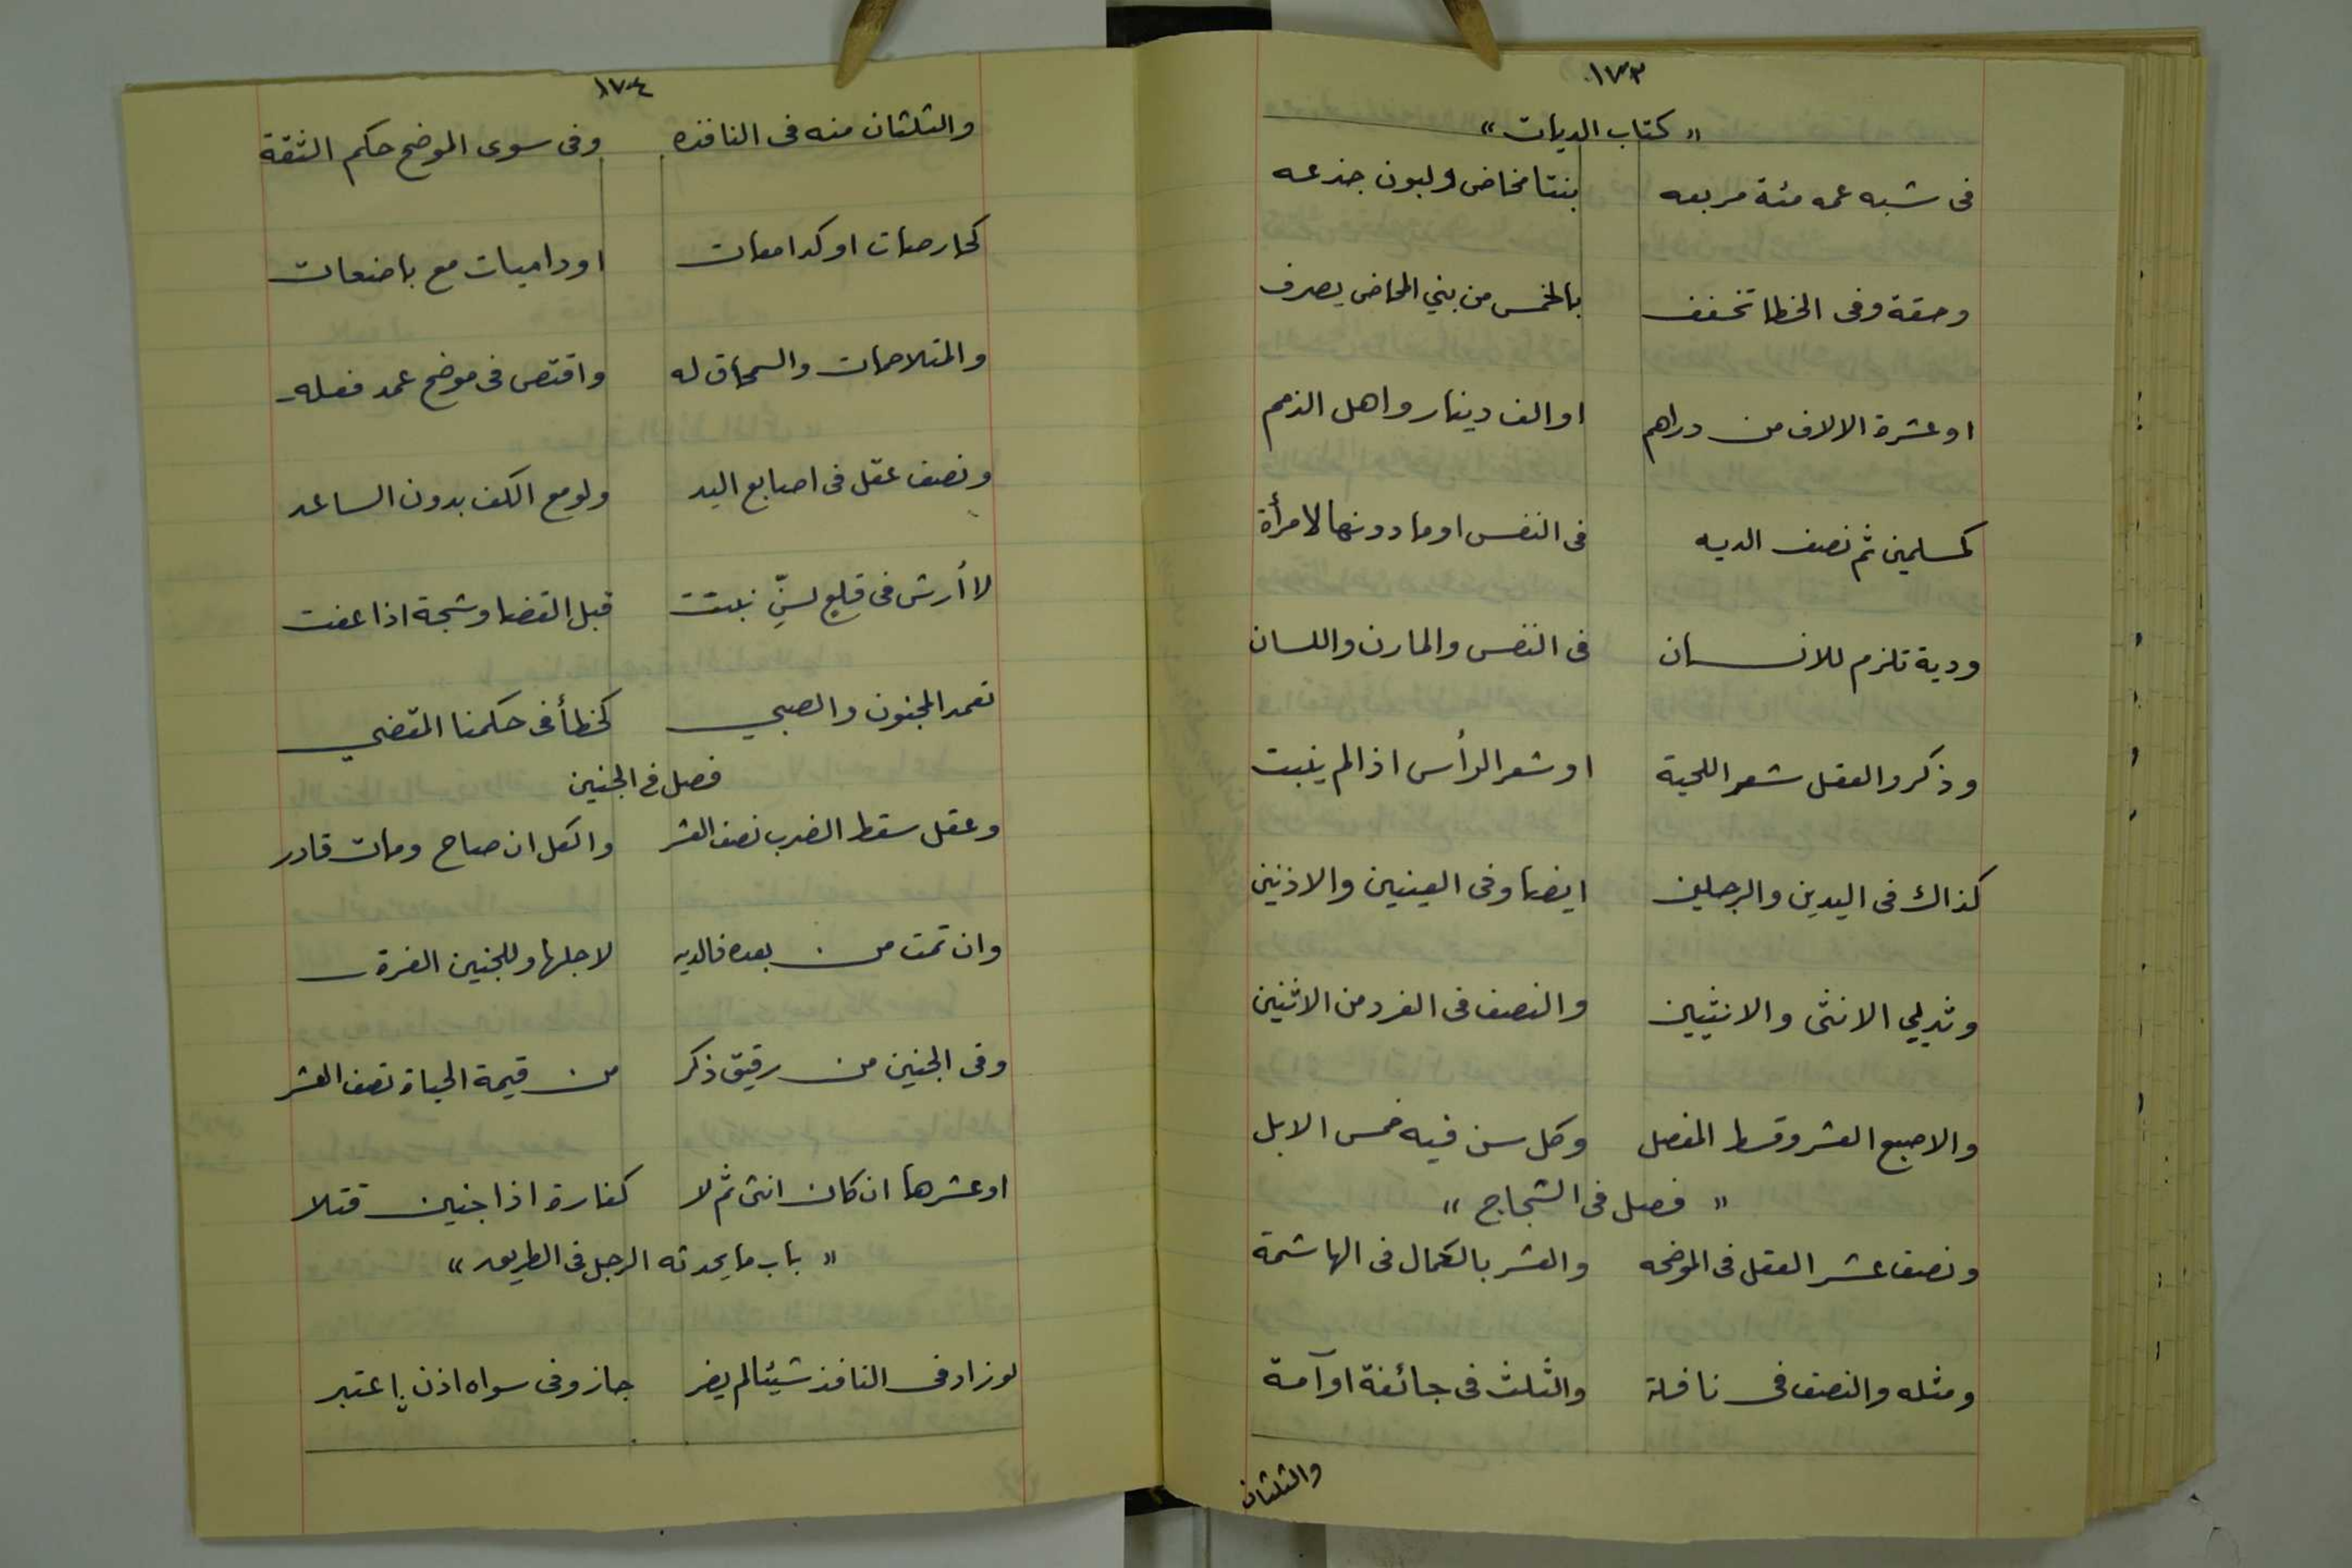 ١٧٣
« كتاب الديات »
فى شبه عمه مئة مربعه بنتا مخاض ولبون جذعه
وحقة وفى الخطا تخفف بالخمس من بني المخاض يصرف
او عشرة الالاف من دراهم او الف دينار واهل الذمم
كمسلمين ثم نصف الديه فى النفس او ما دونها لامرأة
ودية تلزم للانسان فى النفس والمارن واللسان
وذكر والعقل شعر اللحية او شعر الرأس اذا لم ينبت
كذاك فى اليدين والرجلين ايضا وفى العينين والاذنين
وثديي الانثى والانثيين والنصف فى الفرد من الاثنين
والاصبع العشر وقسط المفصل وكل سن فيه خمس الابل
« فصل فى الشجاج »
ونصف عشر العقل فى الموضحه والعشر بالكمال فى الهاشمة
ومثله والنصف فى ناقلة والثلث فى جائفة او آمة
والثلثان
١٧٤
والثلثان منه فى النافذه وفى سوى الموضح حكم الثقة
كحارصات او كدامعات او داميات مع باضعات
والمتلاحمات والسمحاق له واقتص فى موضح عمد فعله
ونصف عقل فى اصابع اليد ولو مع الكف بدون الساعد
لا أرش فى قلع لسنّ نبتت قبل القضا وشجة اذا عفت
تعمد المجنون والصبي كخطأ فى حكمنا المقضي
فصل فى الجنين
وعقل سقط الضرب نصف العشر والكل ان صاح ومات قادر
وان تمت من بعده فالديه لاجلها وللجنين الغرة
وفى الجنين من رقيق ذكر من قيمة الحياة نصف العشر
او عشرها ان كان انثى ثم لا كفارة اذا جنين قتلا
« باب ما يحدثه الرجل فى الطريق »
لو زاد فى النافذ شيئا لم يضر جاز وفى سواه اذن اعتبر